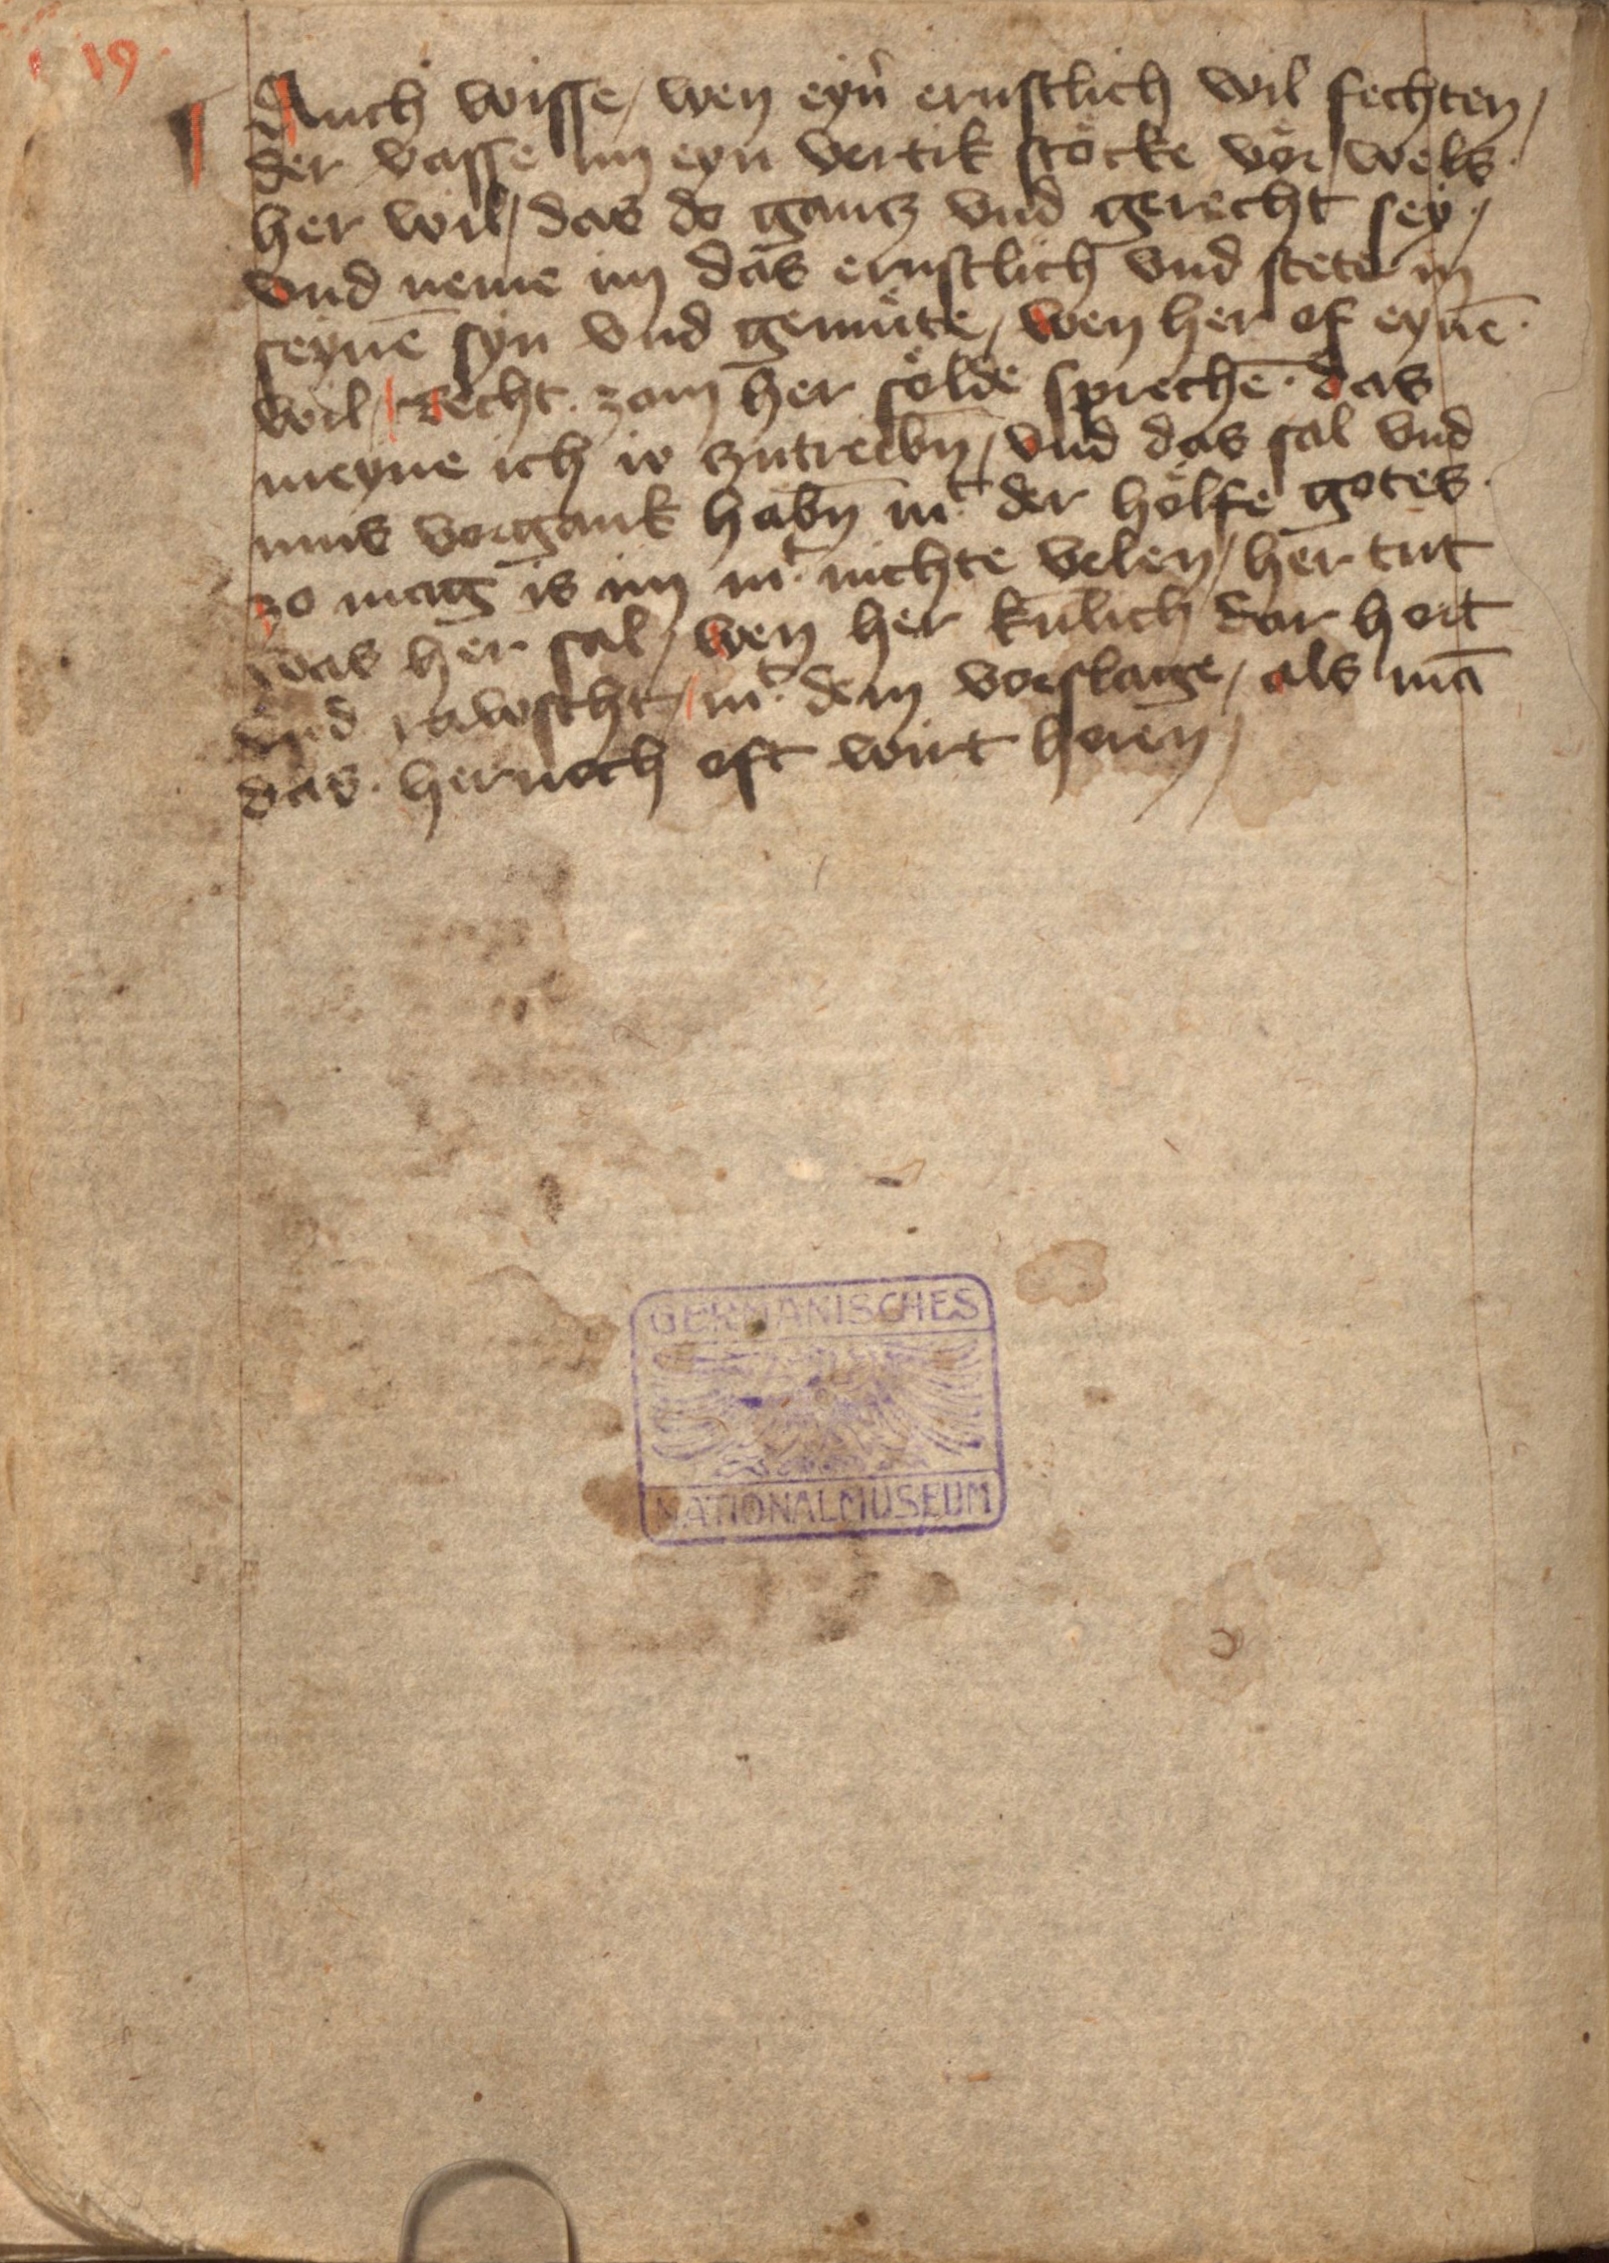 19
Auch wisse / wen eyner ernstlich wil fechten /
der vasse im eyn vertik stöcke vör / wels
her wil / das do gancz vnd gerecht sey /
vnd neme im das ernstlich vnd stete in
seynē syn vnd gemüte / wen her of eynē
wil / Recht zam her sölde sprechē · das
meyne ich io czutreibn̄ / vnd das sal vnd
mus vorgank habn̄ mt der hölfe gotes
zo mag is im mt nichte velen / her tut
was her sal / wen her kunlich dar hort
vnd rawscht / mt dem vorslage / als mā
das hernoch oft wirt horen̄ /
GERMANISCHES
NATIONALMUSEUM